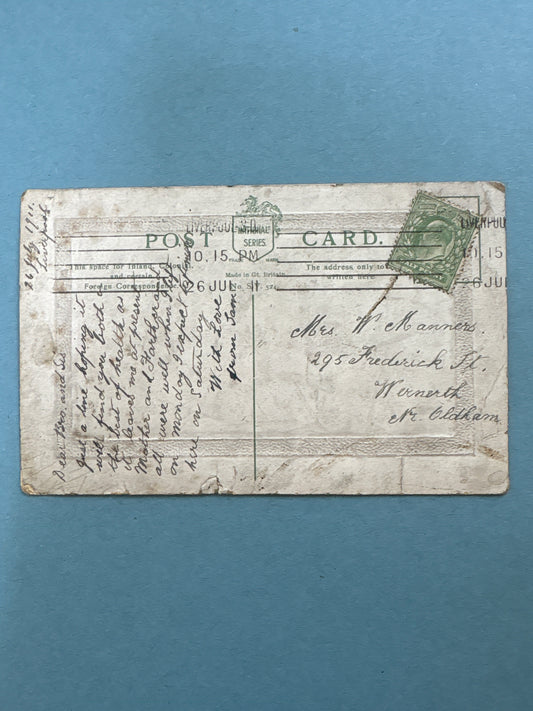 26 July 1911.
Liverpool
Dear Bro. and Sis
Just a line hoping it
will find you both in
the best of health as
it leaves me at present
Mother and
all were well when I left
on Monday I expect
here on Saturday
With Love
from Sam
LIVERPOOL
10.15 PM
26 JUL
POST CARD.
NATIONAL
SERIES.
TRADE MARK
Made in Gt. Britain
This space for Inland,
and certain
Foreign Correspondence
The address only to
written here.
LIVERPOOL
10.15
26 JUL
Mrs. W. Manners.
295 Frederick St.
Wernerth
Nr. Oldham